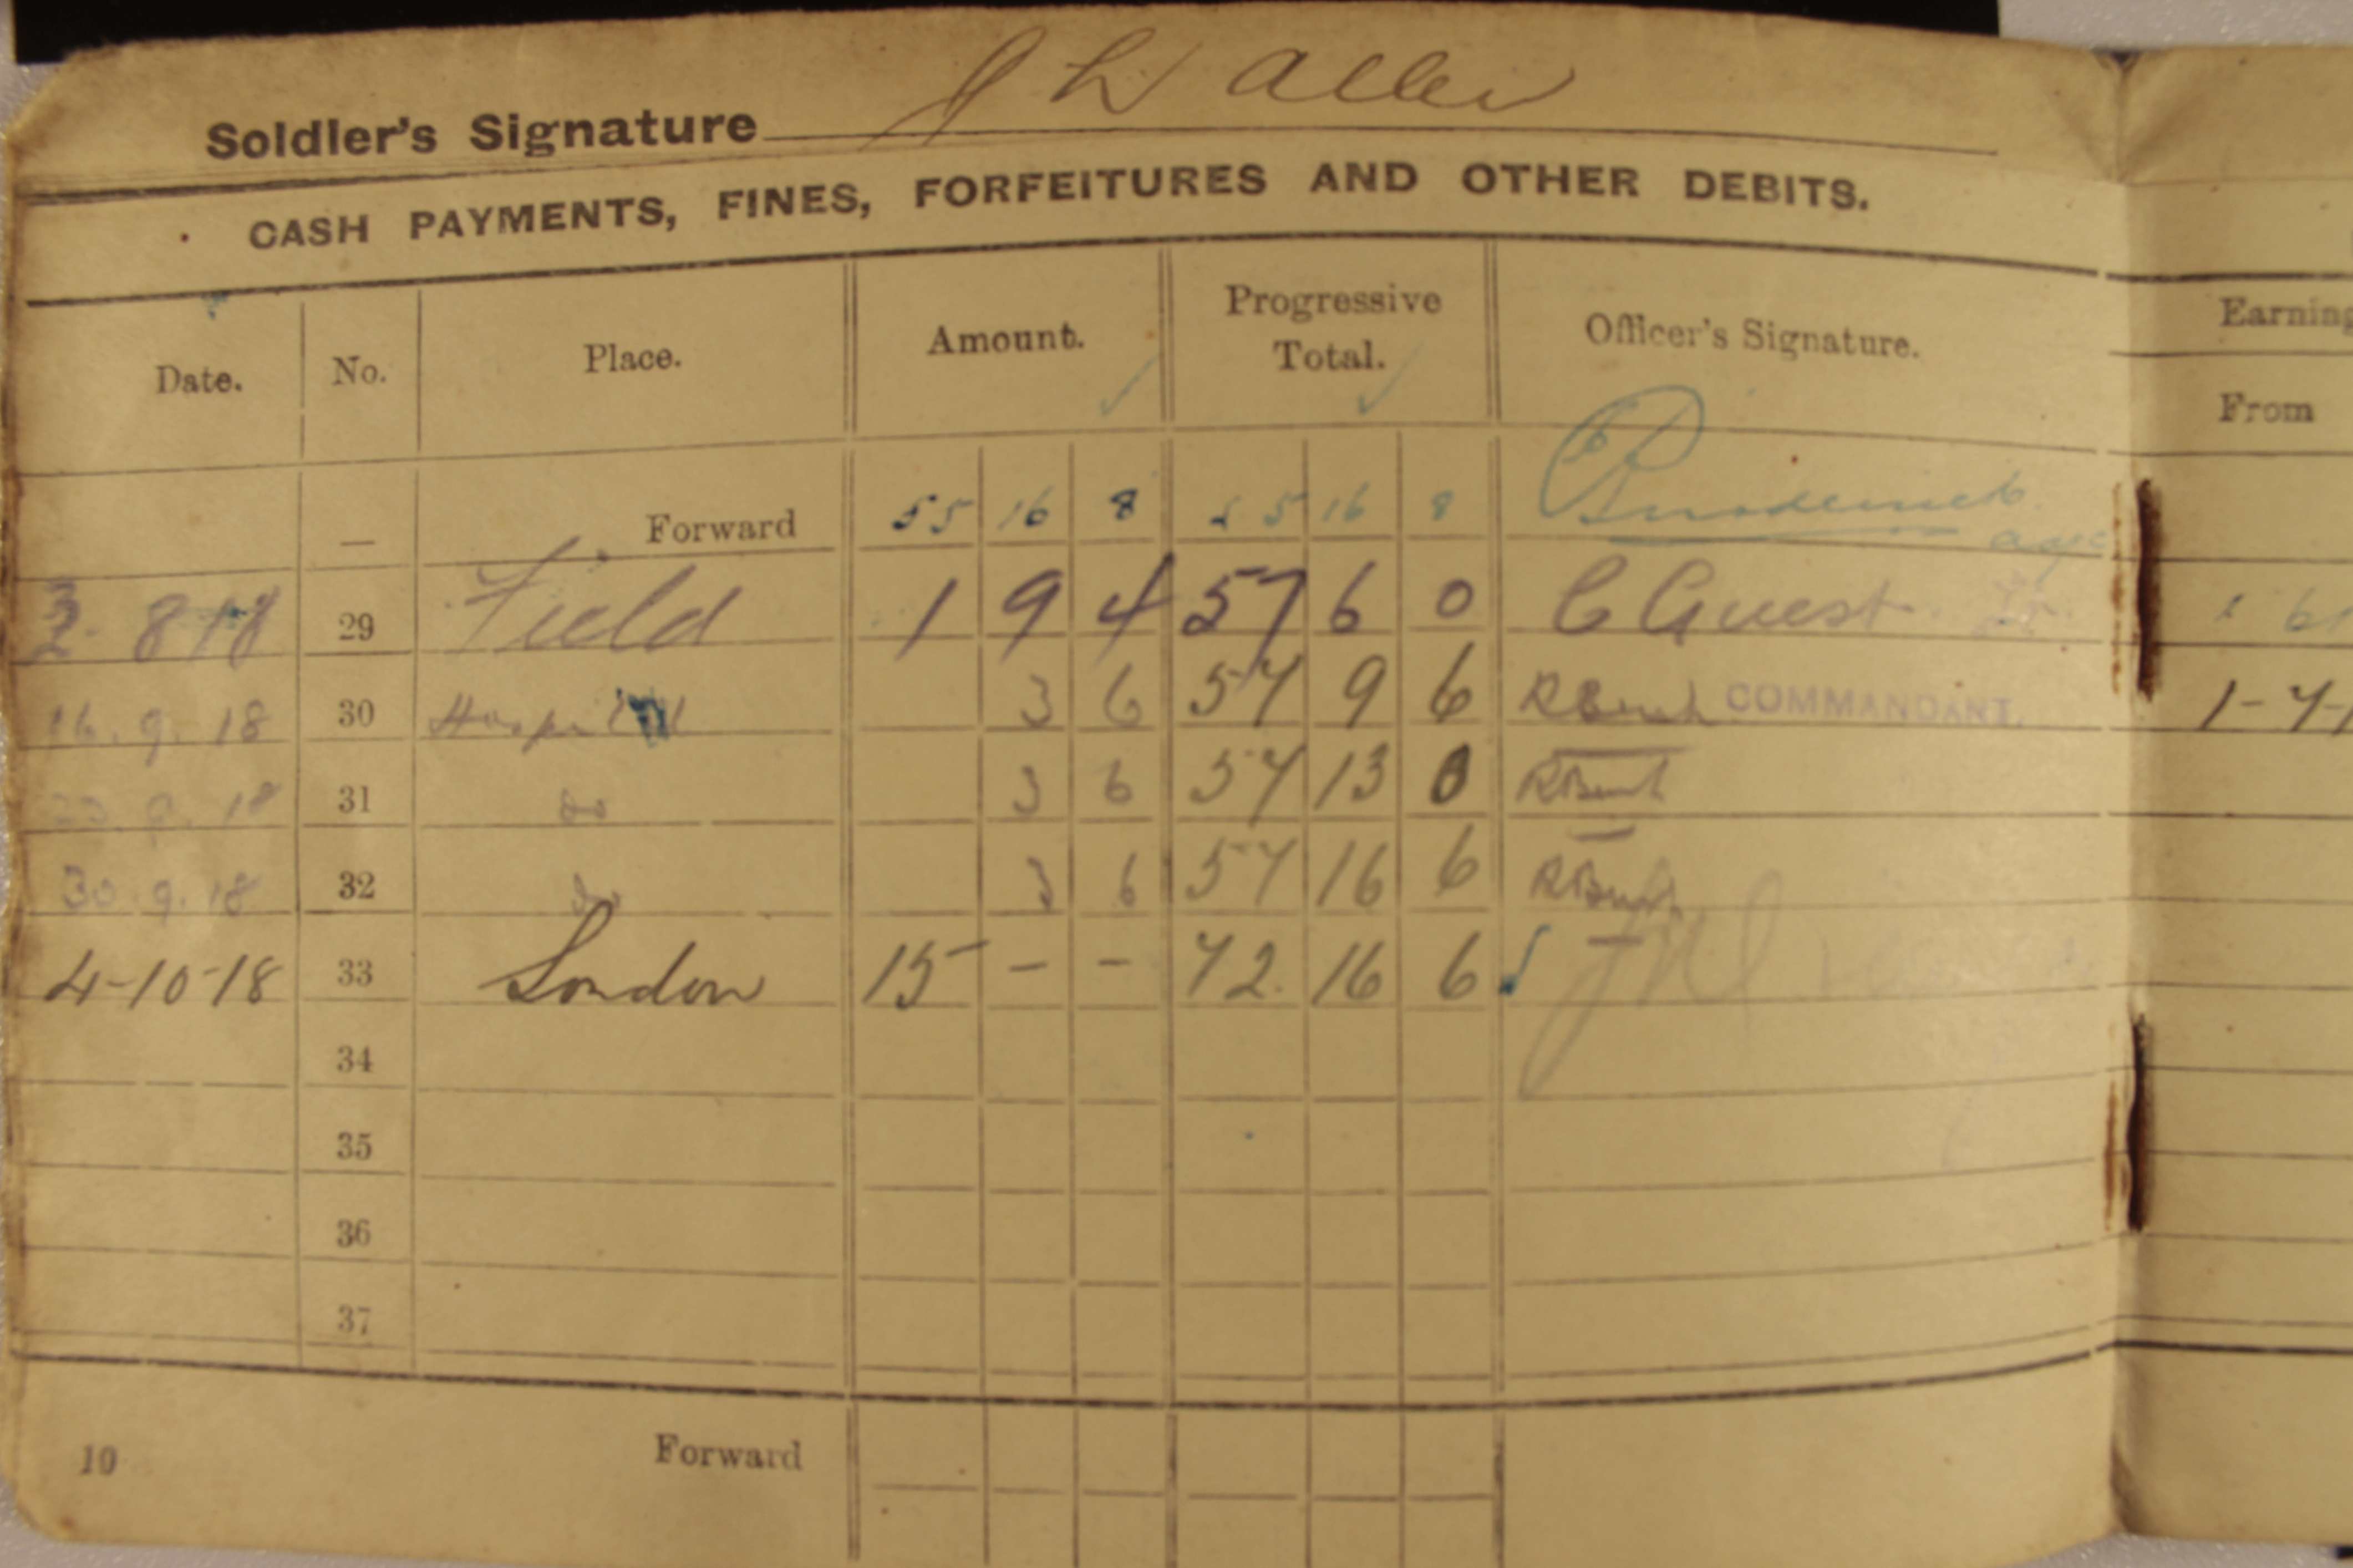 Soldier's Signature J L Allen
CASH PAYMENTS, FINES, FORFEITURES AND OTHER DEBITS.
Date. No. Place. Amount. Progressive Total. Officer's Signature. Earning
From
— Forward 55 16 8 55 16 8
3- 8 18 29 Field 1 9 4 57 6 0 C Guest Lt.
16. 9. 18 30 Hospital 3 6 57 9 6 COMMANDANT. 1-7-1
9. 18 31 do 3 6 57 13 0
30. 9. 18 32 do 3 6 57 16 6
4-10-18 33 London 15 - - 72. 16 6
34
35
36
37
10 Forward